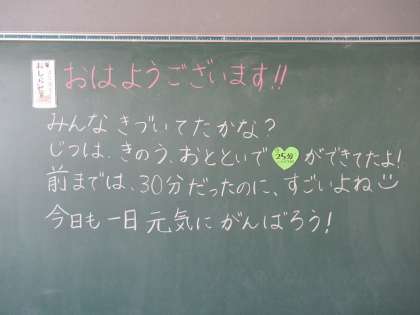 おはようございます!!
みんなきづいてたかな?
じつは、きのう、おとといで 25分 ができてたよ!
前までは、30分だったのに、すごいよね
今日も一日元気にがんばろう!